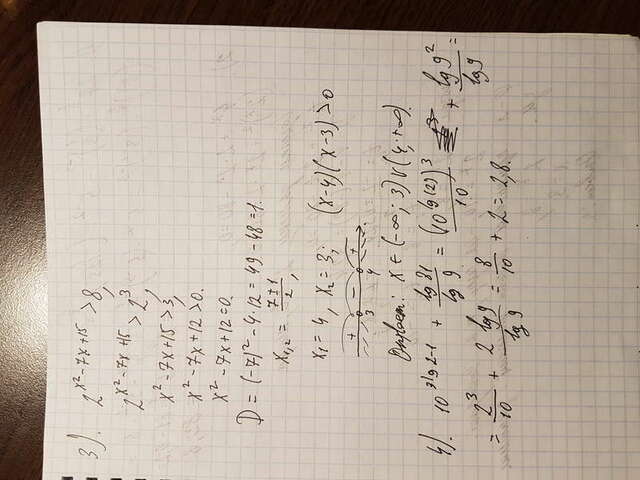 3). 2^{x²-7x+15} > 8,
2^{x²-7x+15} > 2³
x²-7x+15 > 3,
x²-7x+12 > 0.
x²-7x+12 = 0
D = (-7)² - 4·12 = 49 - 48 = 1.
x₁,₂ = (7±1)/2,
x₁ = 4, x₂ = 3; (x-4)(x-3) > 0
+ - +
3 4
Ответ: x ∈ (-∞; 3) ∪ (4; +∞).
4). 10^{3lg2-1} + lg81/lg9 = (10^{lg(2)})³/10 + lg9²/lg9 =
= 2³/10 + 2 lg9/lg9 = 8/10 + 2 = 2,8.